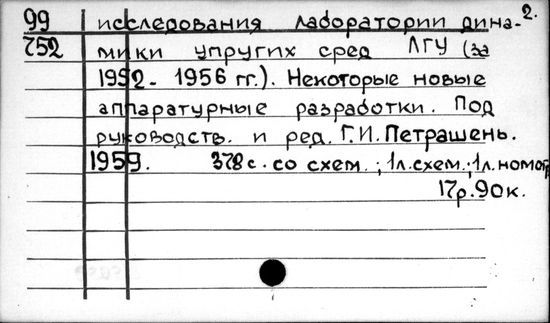 2.
99 исследования лаборатории дина-
752 мики упругих сред ЛГУ (за
1952-1956 гг.). Некоторые новые
аппаратурные разработки. Под
руководств. и ред. Г.И. Петрашень.
1959. 378 с. со схем.; 1л.схем.; 1л.номогр
17р.90к.